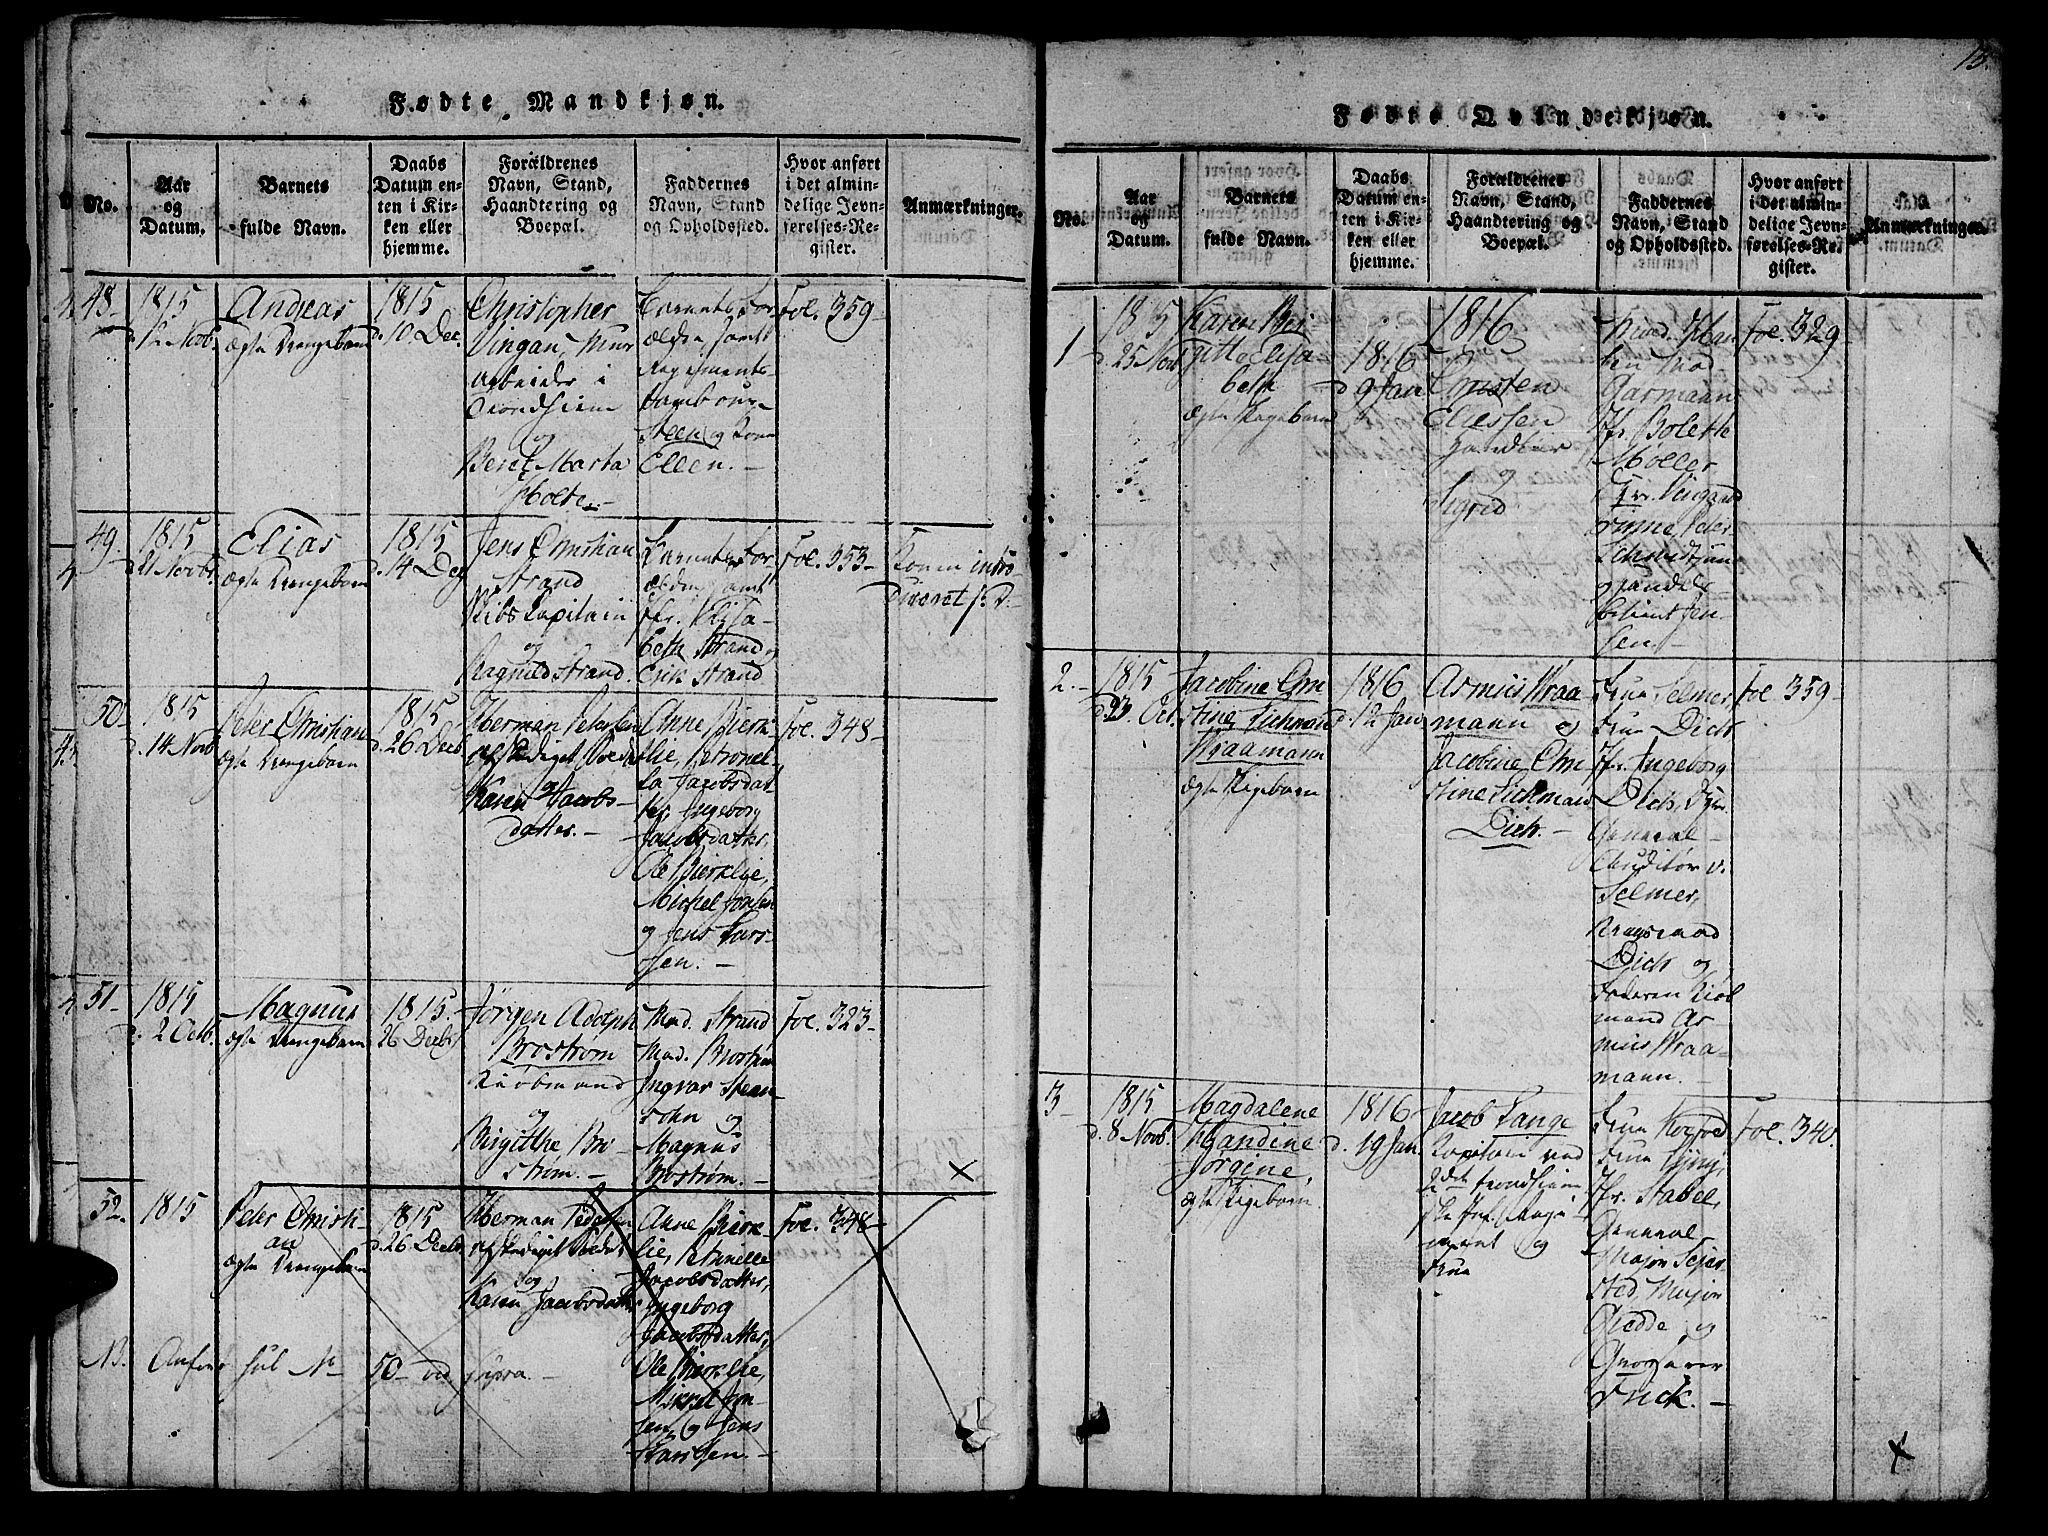 Fødte Mandkjøn.
No.
Aar
og
Datum.
Barnets
fulde Navn.
Daabs
Datum en-
ten i Kir-
ken eller
hjemme.
Forældrenes
Navn, Stand,
Haandtering og
Boepæl.
Faddernes
Navn, Stand
og Opholdssted.
Hvor anført
i det almin-
delige Jevn-
førelses-Re-
gister.
Anmærkninger.
48-
1815
Novb.
Andreas
ægte Drengebarn
1815
d. 10 Dec.
Christopher
Vingan, Mur
Arbeider i
Trondhiem
og
Beret Marta
Holte.-
Barnets For
ældre, samt
Regiments
Tambour
Steen og Kone
Ellen.-
Fol. 359-
49.
1815
d. 21 Novbr.
Elias
ægte Drengebarn
1815
d. 14 Dec
Jens Christian
Strand
Skibs Capitain
og
Ragnild Strand.
Barnets For
ældre, samt
Jfr. Elisa-
beth Strand og
Erik Strand
Fol. 353-
Konen intro-
duceret s: D.
50-
1815
d. 14 Novb
Peter Christian
ægte Drengebarn
1815
d. 26 Decb
Herman Petersen
afskediget Soldat
og
Karen Jacobs-
datter.-
Anne Bierk-
lie, Petronel-
la Jacobsdat
ter, Ingeborg
Jacobsdatter,
Ole Bierklie,
Michel Jonsen
og Jens Lars-
sen.-
Fol. 348-
51-
1815
d. 2 Octb.
Magnus
ægte Drengebarn
1815.
26 Decbr
Jörgen Adolph
Broström
Kiöbmand
og
Birgitthe Bro
ström.-
Mad. Strand
Mad. Broström
Ingvar
sohn og
Magnus
Broström.-
Fol. 323-
52.
1815
Peter Christi-
an
ægte Drengebarn
1815
d. 26 Decb
Herman Pedersen
afskediget Soldat
og
Karen Jacobsdatter
Anne Bierk-
lie, Petronelle
Jacobsdatter,
Ingeborg
Jacobsdatter,
Ole Bierklie,
Mikkel Jon-
sen og Jens
Larssen.-
Fol. 348-
NB. Anført sub N- 50- vid supra.-
13.
Fødte Qvindekjøn.
No.
Aar
og
Datum.
Barnets
fulde Navn.
Daabs
Datum en-
ten i Kir-
ken eller
hjemme.
Forældrenes
Navn, Stand,
Haandtering og
Boepæl.
Faddernes
Navn, Stand
og Opholdssted.
Hvor anført
i det almin-
delige Jevn-
førelses-Re-
gister.
Anmærkninger.
1
1815
d. 25 Novb
Karen Bir
gitte Elisa
beth
ægte Pigebarn
1816
d 9 Jan
1816
Christen
Eliesen
og
Sigrid
Mad.
ken Mad
Garmaan
Jfr. Boleth
Möller
Peter
Schmidt jun
og Handels
betient Jen
sen.-
Fol. 329-
2.-
1815
d. 23. Oct.
Jacobine Chri
stine Sichmand
Kraamann
ægte Pigebarn
1816
d. 12 Jan
Asmus Kraa
mann og
Jacobine Chri
stine Sichmand
Dich.-
Frue Selmer
Frue Dich
Jfr. Ingeborg
Dich,
General-
Auditör v.
Selmer,
Krigsraad
Dich og
Faderen Kiöb
mand As
mus Kraa-
mann.-
Fol. 359-
3-
1815
d. 8 Novb.
Magdalene
Handine
Jörgine,
ægte Pigebarn.
1816-
d. 19 Jan.
Jacob Lange
Kapitain ved
2det Trondhiem
ske Inf. Regi
ment og
Frue
Frue
Frue
Jfr. Stabel,
General
Major Sejer
sted, Major
Giedde, og
Grosserer
Frick.-
Fol. 340.